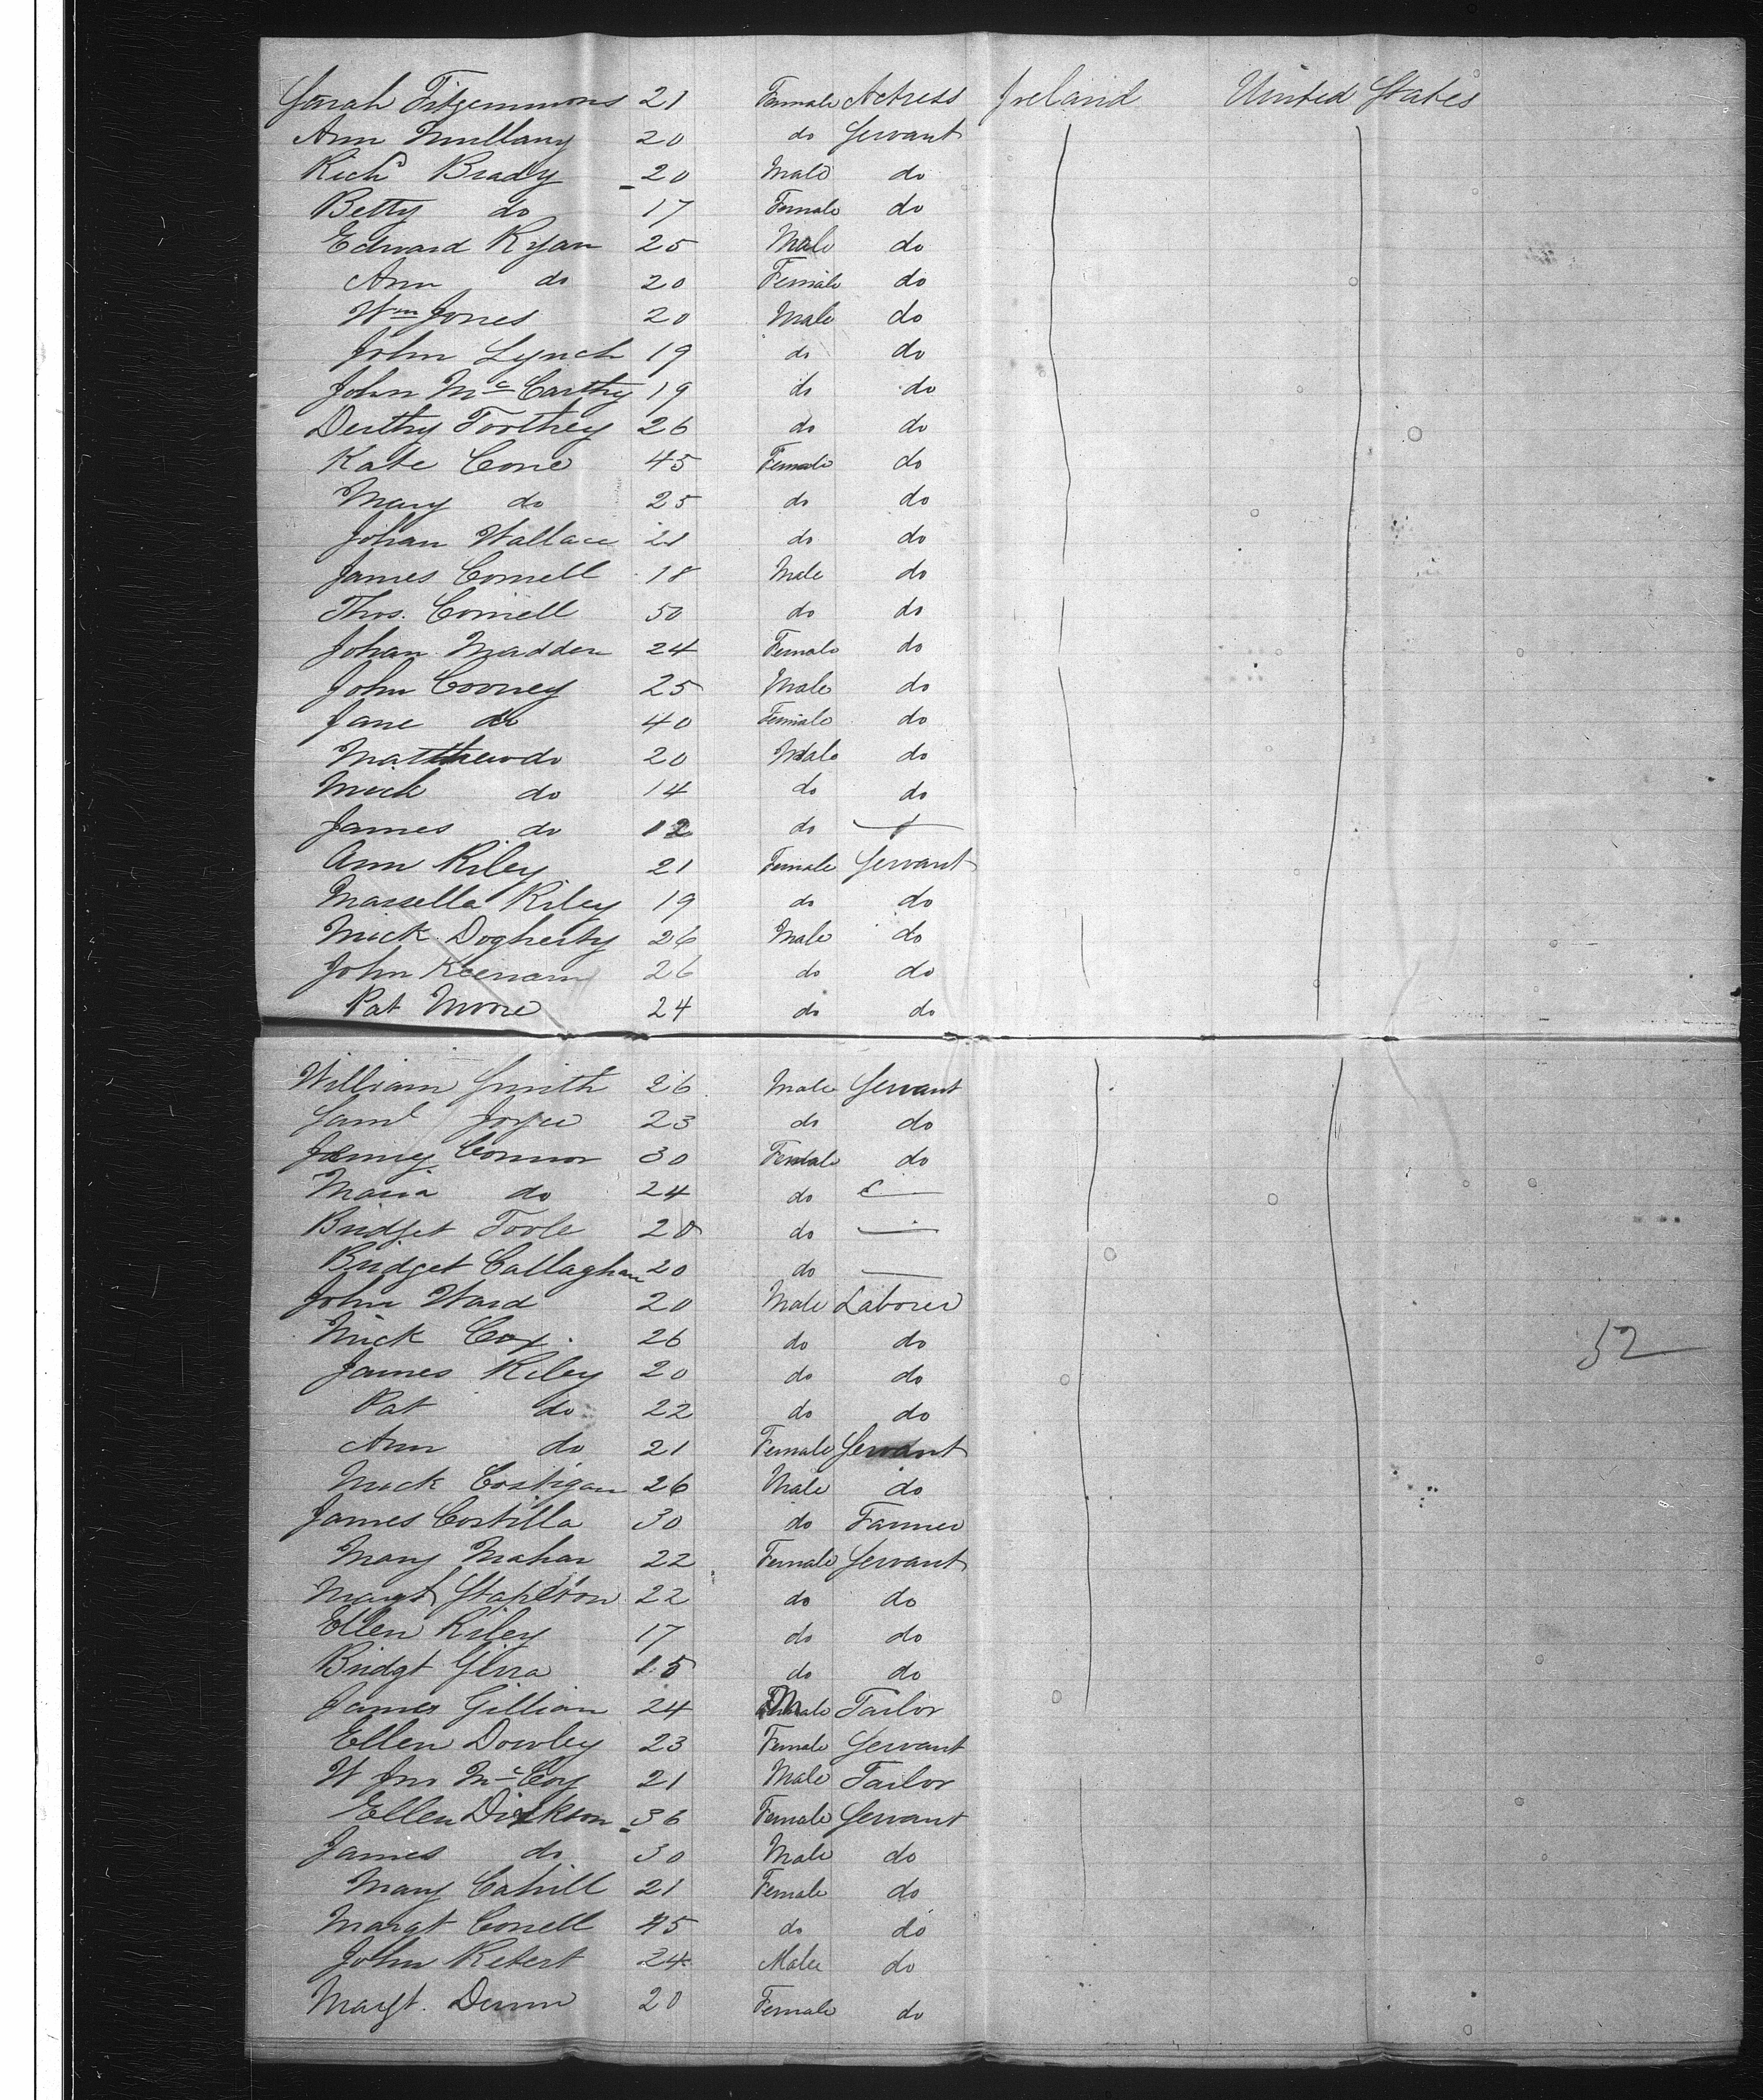 Sarah Fitzemmons 21 Female Actress Ireland United States
Ann Mullany 20 do Servant
Richd Brady 20 Male do
Betty do 17 Female do
Edward Ryan 25 Male do
Ann do 20 Female do
Wm Jones 20 Male do
John Lynch 19 do do
John McCarthy 19 do do
Derthy Torthey 26 do do
Kate Cone 45 Female do
Mary do 25 do do
Johan Wallace 21 do do
James Connell 18 Male do
Thos. Connell 50 do do
Johan Madden 24 Female do
John Cooney 25 Male do
Jane do 40 Female do
Matthew do 20 Male do
Mick do 14 do do
James do 12 do
Ann Riley 21 Female Servant
Massella Riley 19 do do
Mick Dogherty 26 Male do
John Keenam 26 do do
Pat Moore 24 do do
William Smith 26 Male Servant
Saml Joyce 23 do do
Jenny Connor 30 Female do
Maria do 24 do —
Bridget Toole 20 do —
Bridget Callaghan 20 do —
John Ward 20 Male Laborer
Mick Cox 26 do do
James Riley 20 do do
Pat do 22 do do
Ann do 21 Female Servant
Mick Costigan 26 Male do
James Costilla 30 do Farmer
Mary Mahar 22 Female Servant
Margt Stapleton 22 do do
Ellen Riley 17 do do
Bridgt 15 do do
James Gillian 24 Male Tailor
Ellen Dowley 23 Female Servant
W Jno McCoy 21 Male Tailor
Ellen Dickson 36 Female Servant
James do 30 Male do
Mary Cahill 21 Female do
Margt Conell 45 do do
John Retert 24 Male do
Margt. Dunn 20 Female do
52